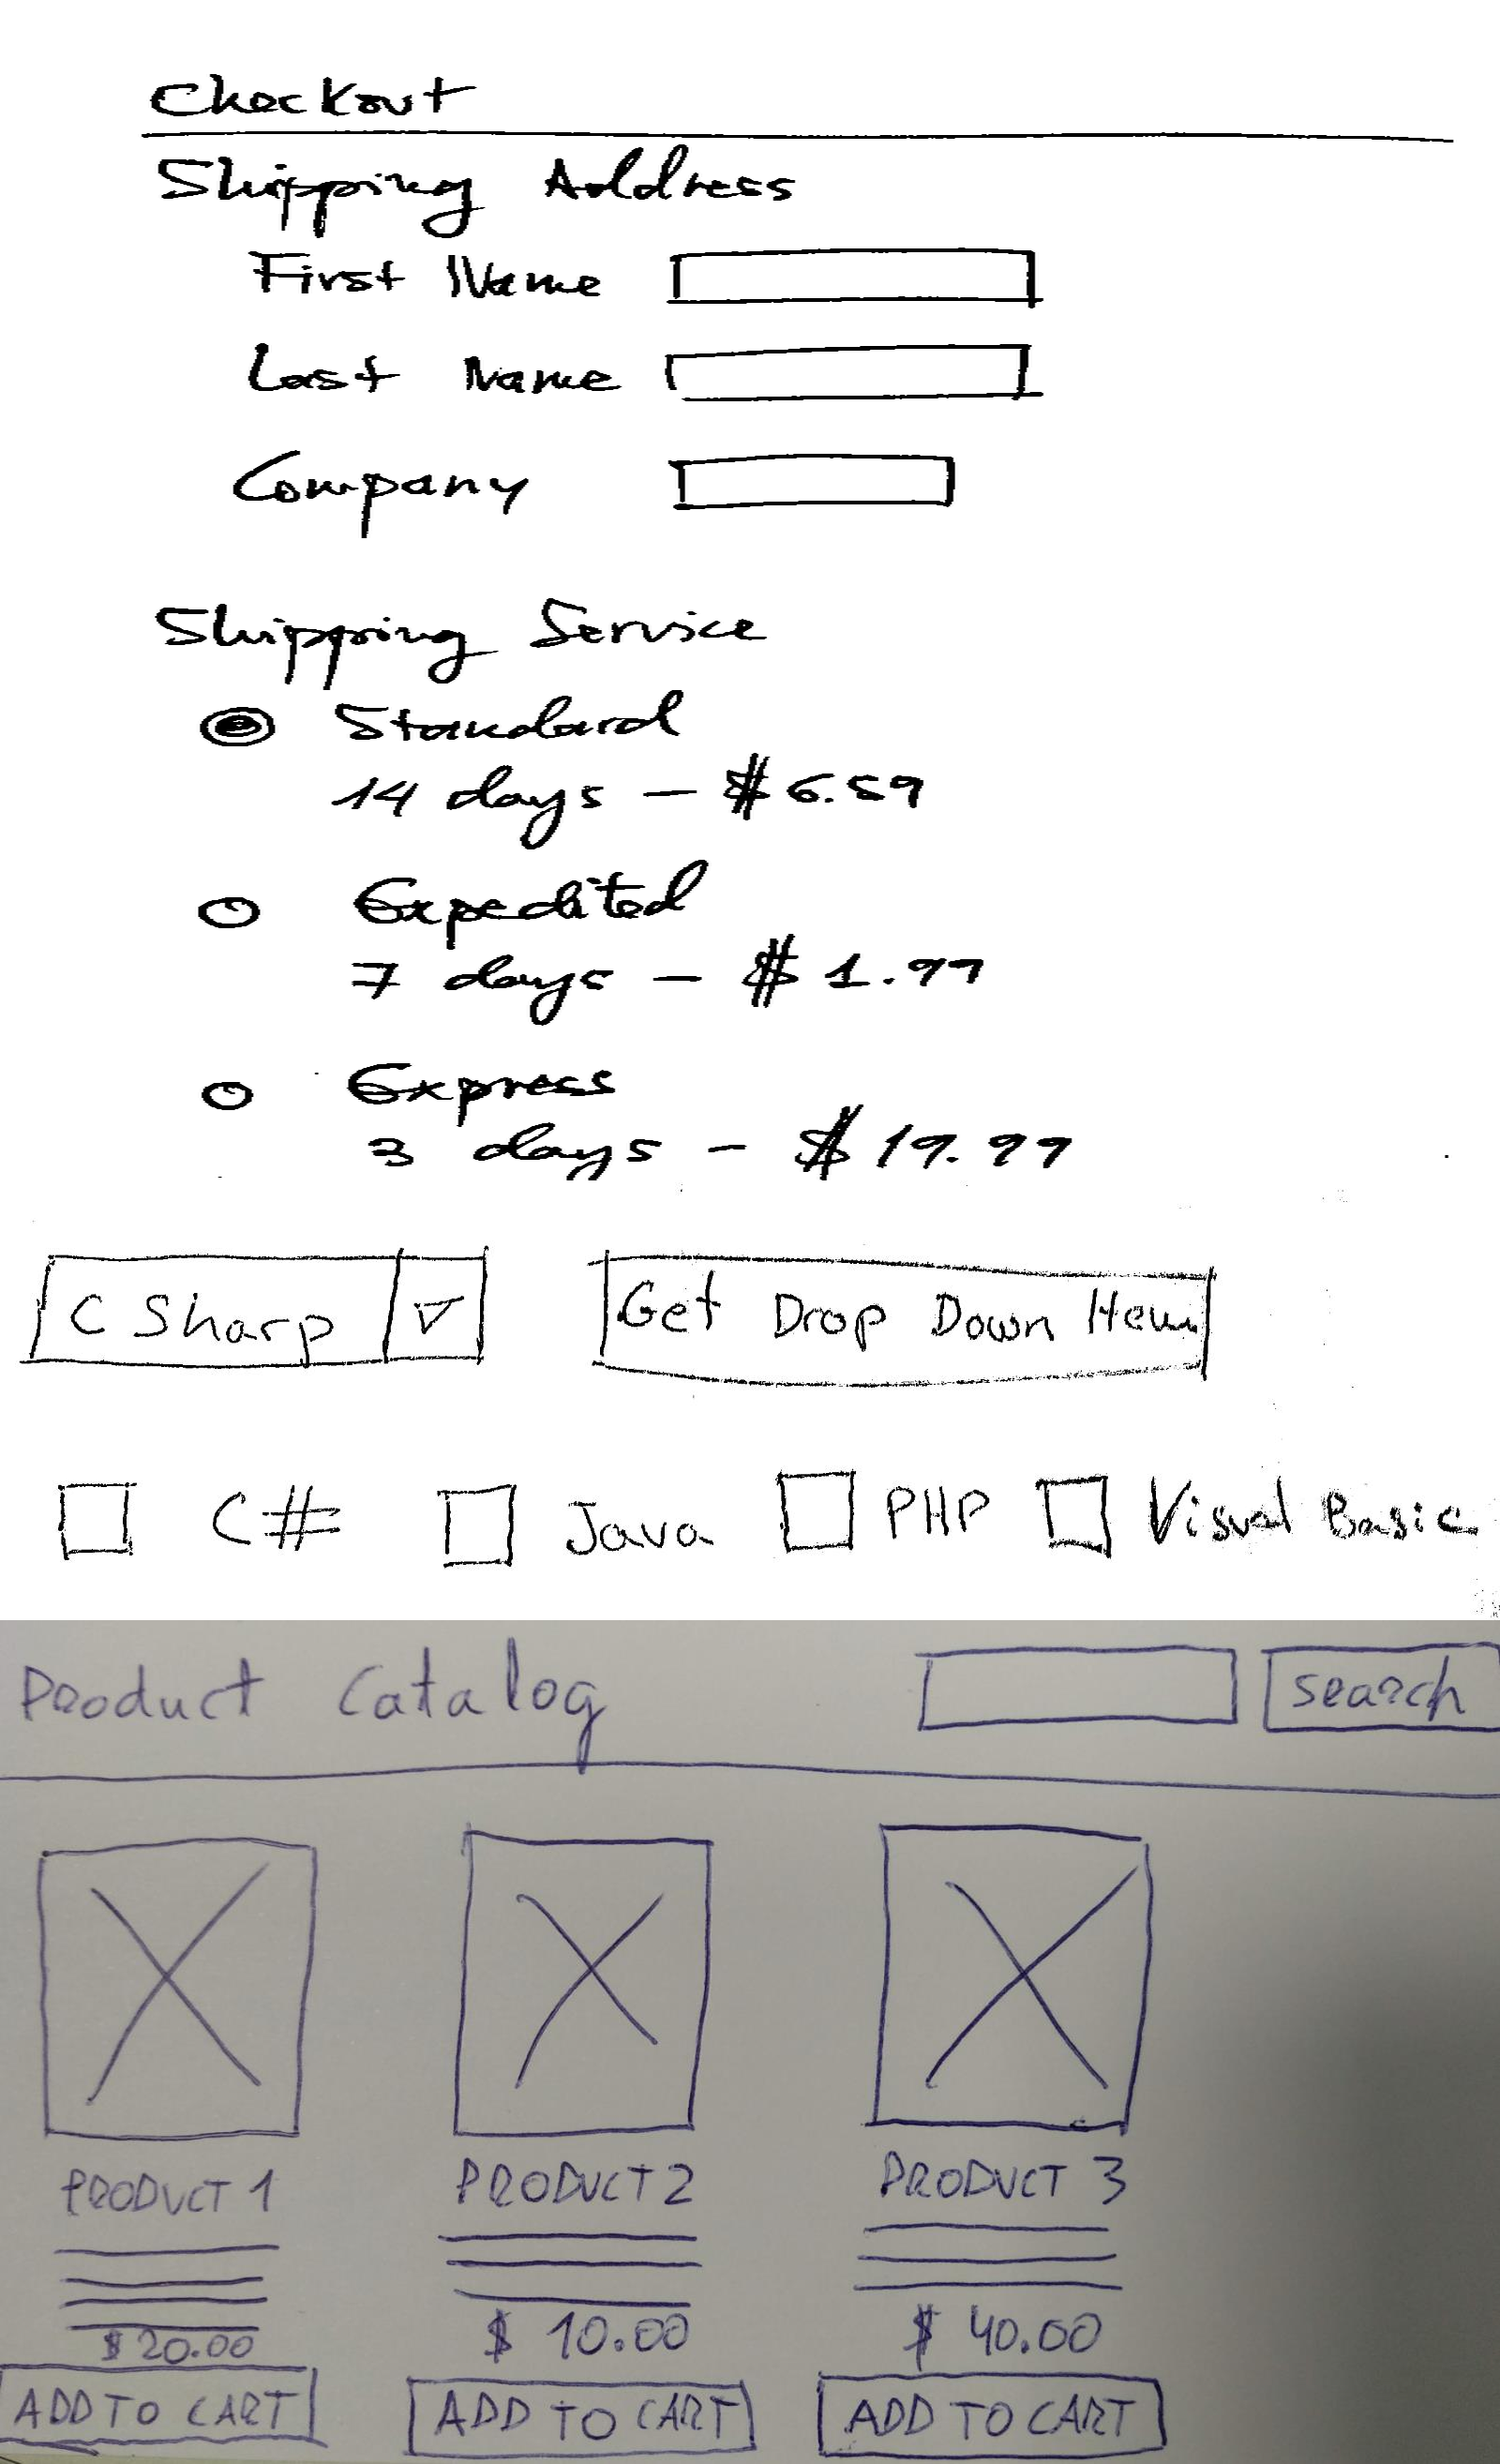 Checkout
Shipping Address
First Name
Last Name
Company
Shipping Service
Standard
14 days - $6.59
Expedited
7 days - $1.99
Express
3 days - $19.99
C Sharp
Get Drop Down Item
C# Java PHP Visual Basic
Product Catalog search
PRODUCT 1 PRODUCT 2 PRODUCT 3
$20.00 $10.00 $40.00
ADD TO CART ADD TO CART ADD TO CART